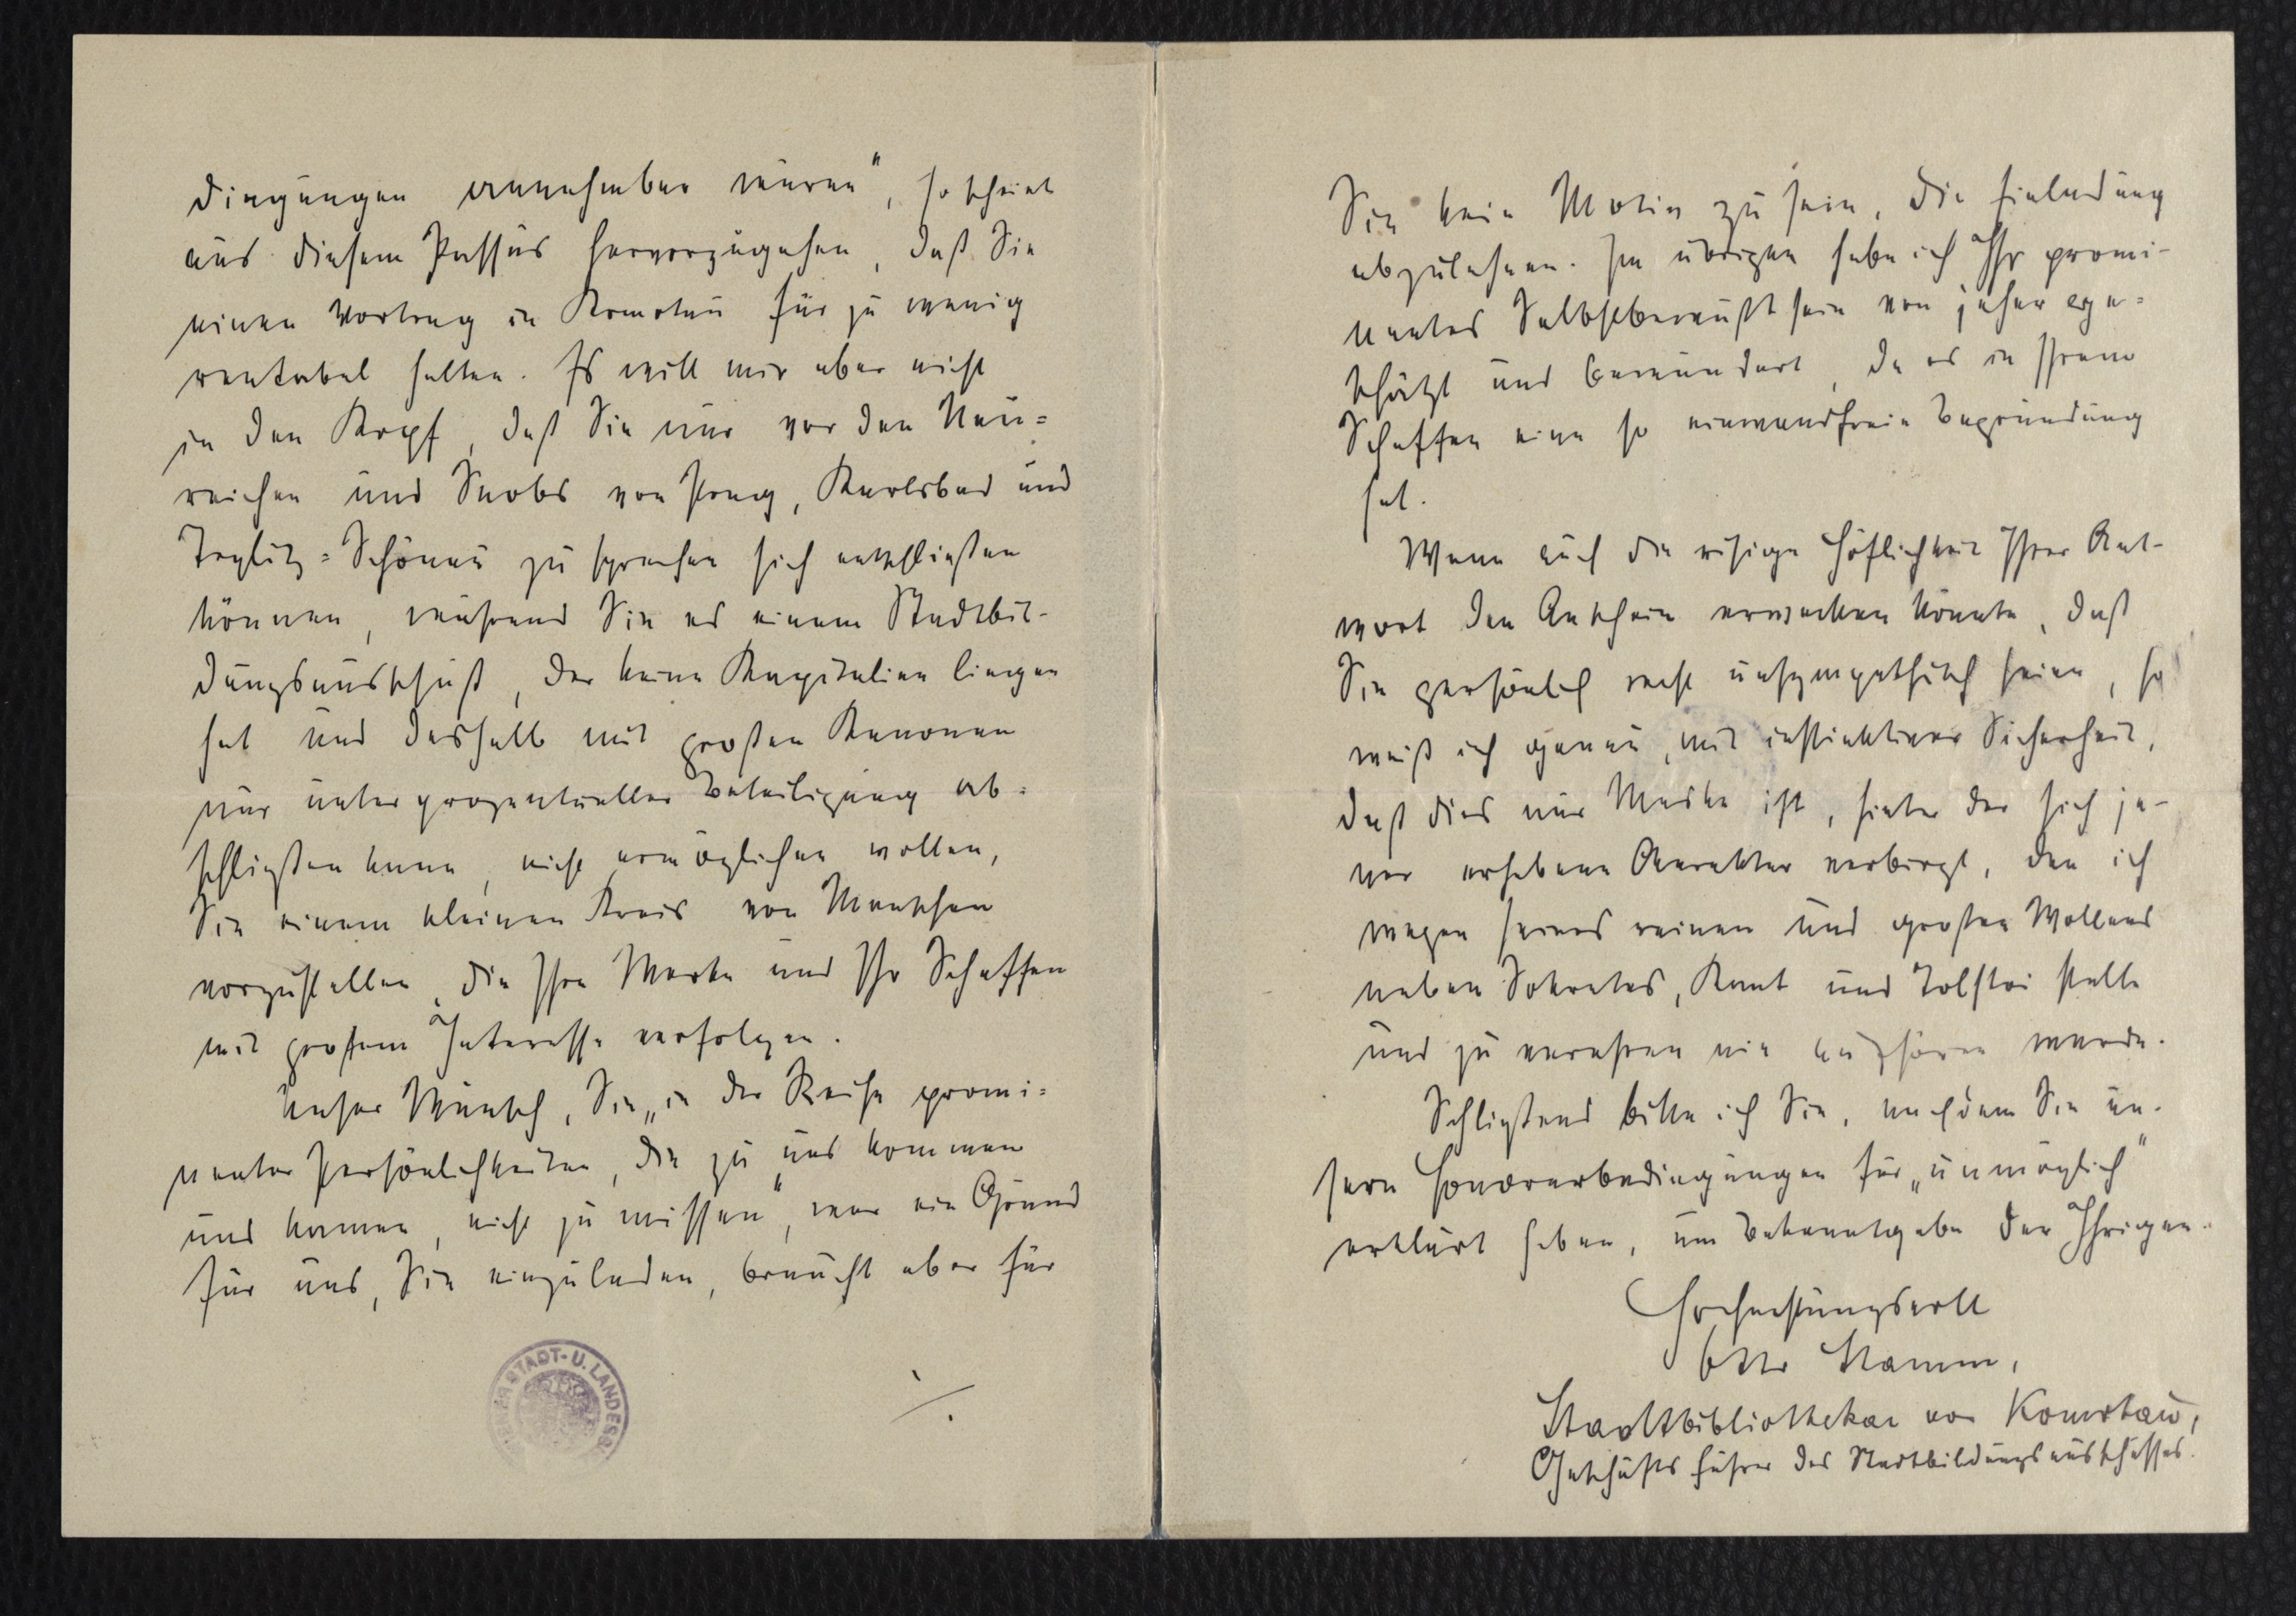 dingungen annehmbar wären", so scheint
aus diesem Passus hervorzugehen, daß Sie
einen Vortrag in Komotau für zu wenig
rentabel halten. Es will mir aber nicht
in den Kopf, daß Sie nur vor den Neu=
reichen und Snobs von Prag, Karlsbad und
Teplitz=Schönau zu sprechen sich entschließen
können, während Sie es einem Stadtbil-
dungsausschuß, der keine Kapitalien liegen
hat und deshalb mit großen Kanonen
nur unter prozentueller Beteiligung ab=
schließen kann, nicht ermöglichen wollen,
Sie einem kleinen Kreis von Menschen
vorzustellen, die Ihre Werke und Ihr Schaffen
mit großem Interesse verfolgen.
Unser Wunsch, Sie „in der Reihe promi=
nenter Persönlichkeiten, die zu uns kommen
und kamen, nicht zu missen", war ein Grund
für uns, Sie einzuladen, braucht aber für
./.
STADT- U. LANDES
Sie kein Motiv zu sein, die Einladung
abzulehnen. Im übrigen habe ich Ihr promi-
nentes Selbstbewußtsein von jeher ge=
schätzt und bewundert, da es in Ihrem
Schaffen eine so einwandfreie Begründung
hat.
Wenn auch die eisige Höflichkeit Ihrer Ant-
wort den Anschein erwecken könnte, daß
Sie persönlich recht unsympathisch seien, so
weiß ich genau, mit instinktiver Sicherheit,
daß dies nur Maske ist, hinter der sich je-
ner erhabene Charakter verbirgt, den ich
wegen seines reinen und großen Wollens
neben Sokrates, Kant und Tolstoi stelle
und zu verehren nie aufhören werde.
Schließend bitte ich Sie, nachdem Sie un-
sere Honorarbedingungen für „unmöglich"
erklärt haben, um Bekanntgabe der Ihrigen.
Hochachtungsvoll
Otto Stamm,
Stadtbibliothekar von Komotau,
Geschäftsführer des Stadtbildungsausschusses.